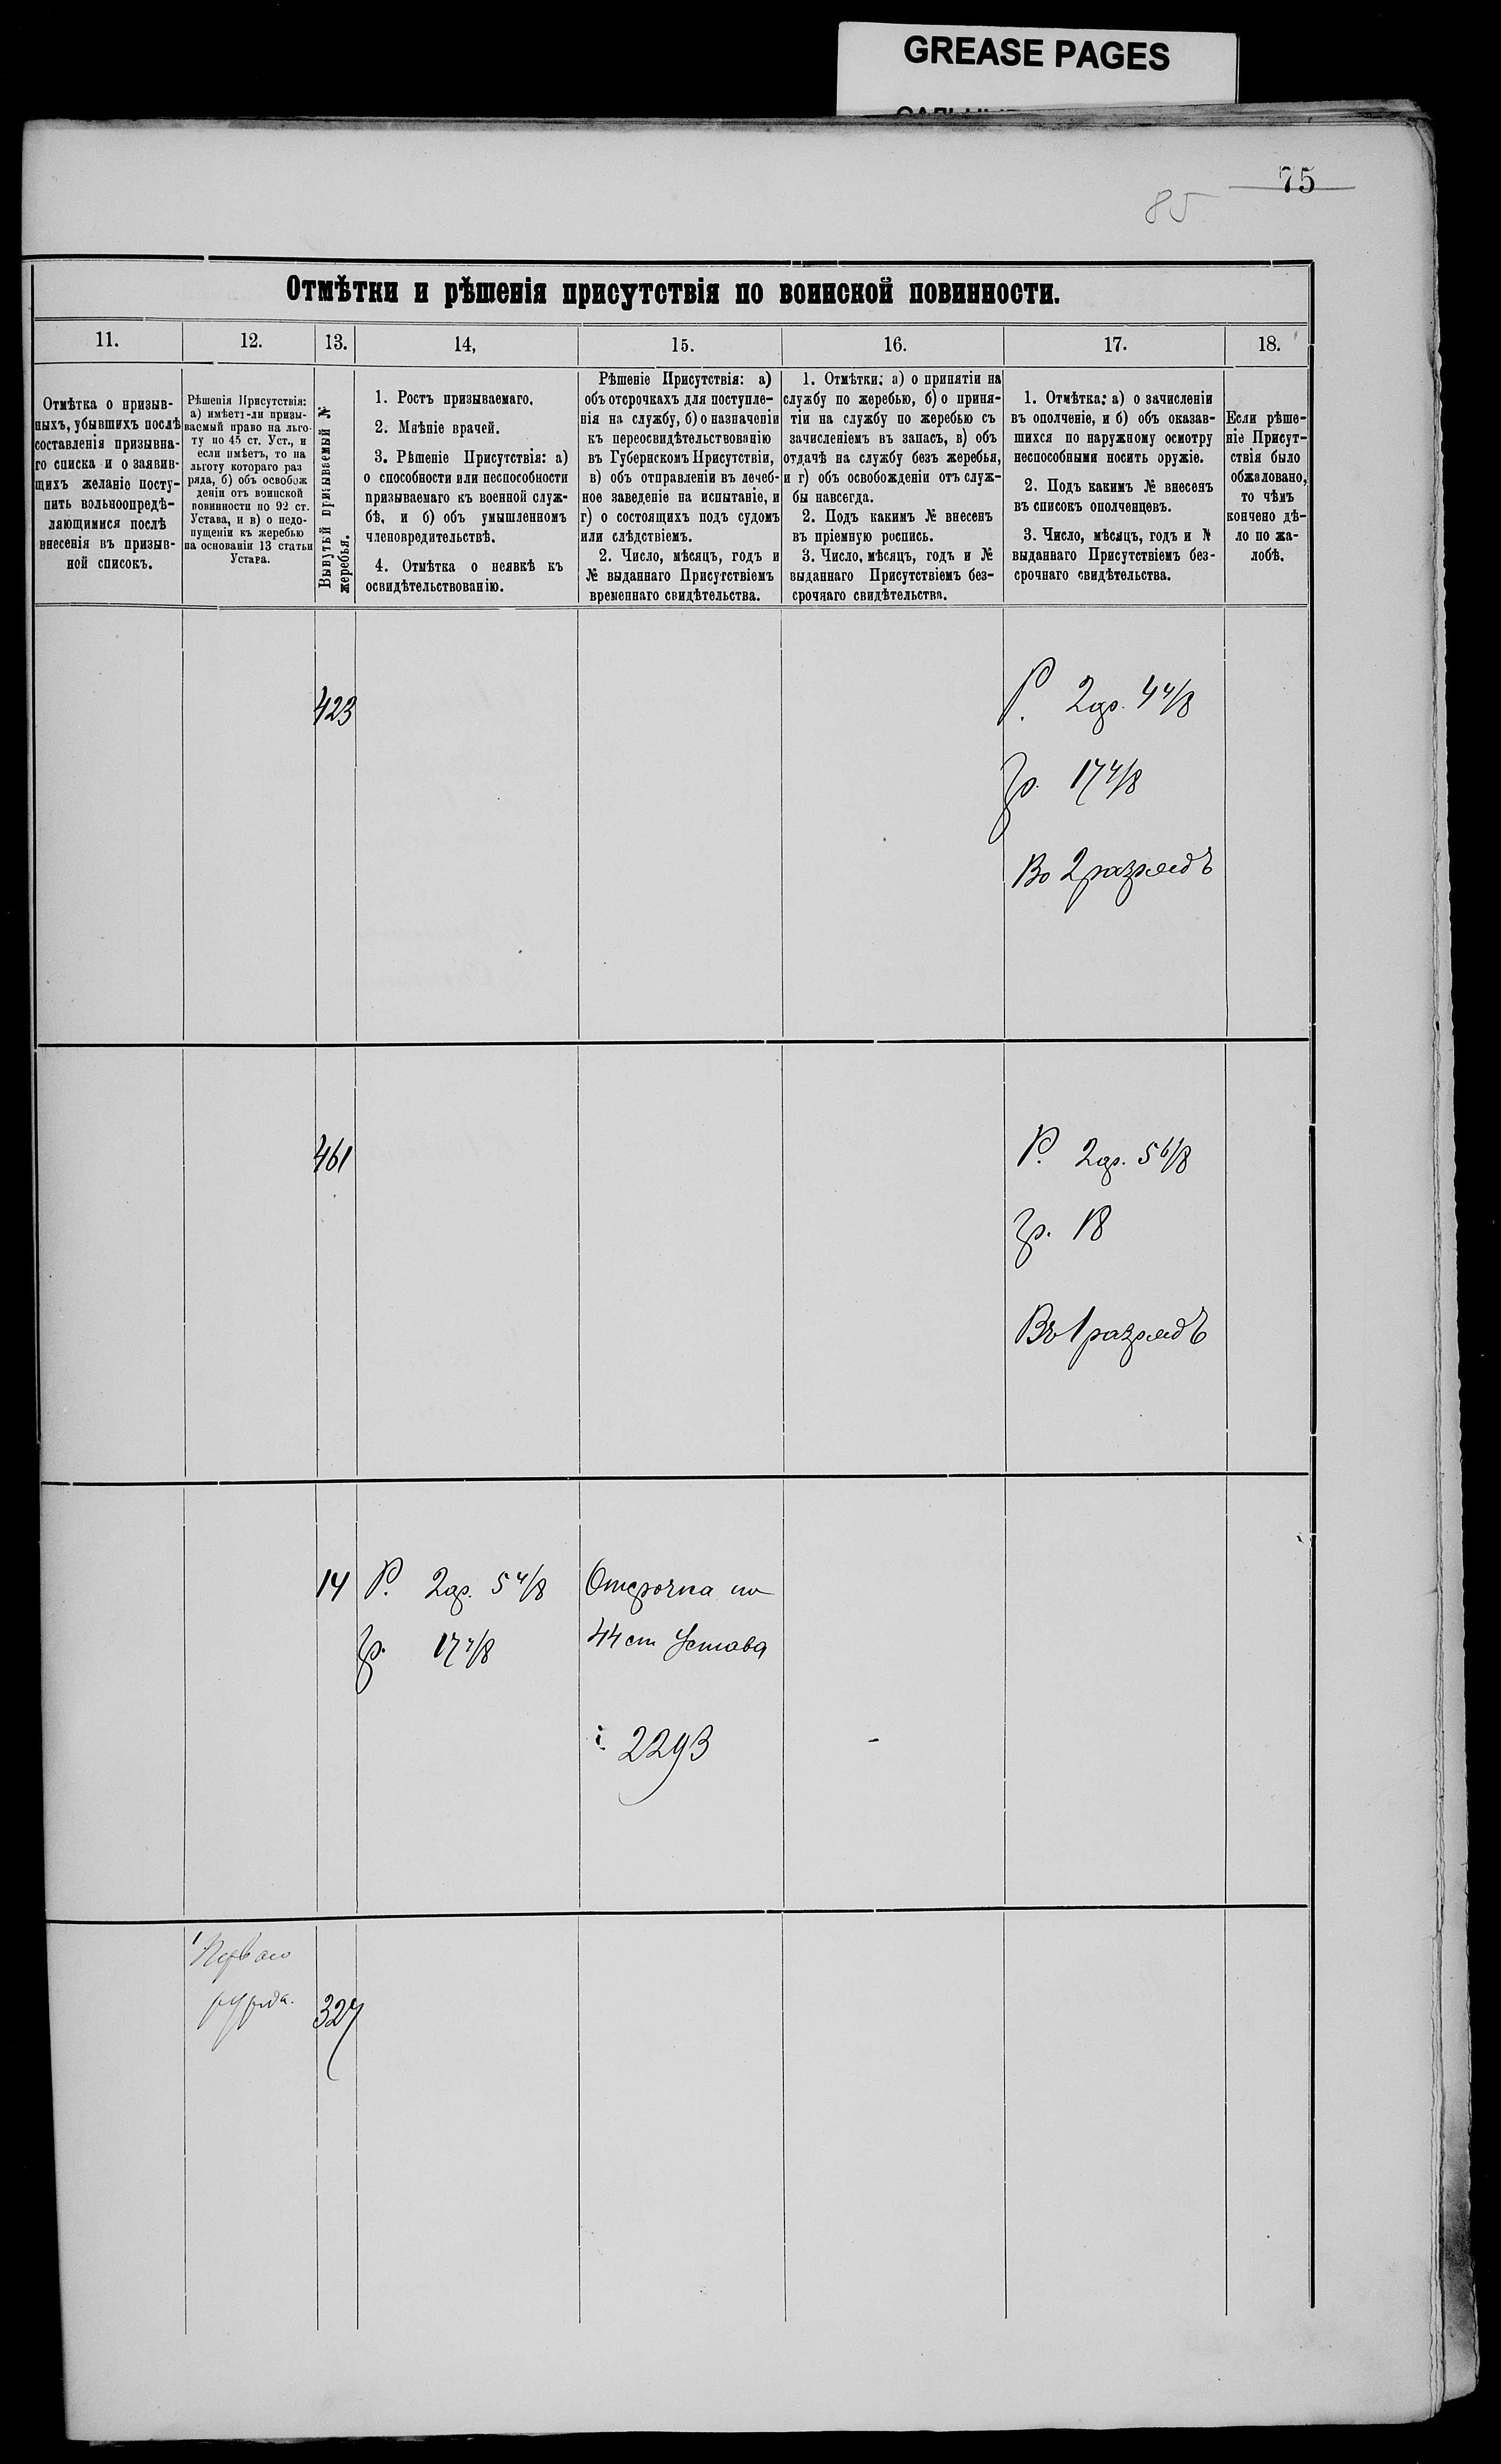 GREASE PAGES
75
85
Отмѣтки и рѣшенія присутствія по воинской повинности.
11.
12.
13.
14,
15.
16.
17.
18.
Отмѣтка о призыв-
ныхъ, убывшихъ послѣ
составленія призывна-
го списка и о заявив-
щихъ желаніе посту-
пить вольноопредѣ-
ляющимися послѣ
внесенія въ призыв-
ной список.
Рѣшенія Присутствія:
а) имѣетъ-ли призы-
ваемый право на льго-
ту по 45 ст. Уст., и
если имѣетъ, то на
льготу котораго раз
ряда, б) объ освобож
деніи отъ воинской
повинности по 92 ст.
Устава, и в) о недо-
пущеніи къ жеребью
на основаніи 13 статьи
Устава.
Вынутый призываемый №
жеребья.
1. Ростъ призываемаго.
2. Мнѣніе врачей.
3. Рѣшеніе Присутствія: а)
о способности или неспособности
призываемаго къ военной служ-
бѣ, и б) объ умышленномъ
членовредительствѣ.
4. Отмѣтка о неявкѣ къ
освидѣтельствованію.
Рѣшеніе Присутствія: а)
объ отсрочкахъ для поступле-
нія на службу, б) о назначеніи
къ переосвидѣтельствованію
въ Губернскомъ Присутствіи,
в) объ отправленіи въ лечеб-
ное заведеніе на испытаніе, и
г) о состоящихъ подъ судомъ
или слѣдствіемъ.
2. Число, мѣсяцъ, годъ и
№ выданнаго Присутствіемъ
временнаго свидѣтельства.
1. Отмѣтки: а) о принятіи на
службу по жеребью, б) о приня-
тіи на службу по жеребью съ
зачисленіемъ въ запасъ, в) объ
отдачѣ на службу безъ жеребья,
и г) объ освобожденіи отъ служ-
бы навсегда.
2. Подъ какимъ № внесенъ
въ пріемную роспись.
3. Число, мѣсяцъ, годъ и №
выданнаго Присутствіемъ без-
срочнаго свидѣтельства.
1. Отмѣтка: а) о зачисленіи
въ ополченіе, и б) объ оказав-
шихся по наружному осмотру
неспособными носить оружіе.
2. Подъ какимъ № внесенъ
въ списокъ ополченцевъ.
3. Число, мѣсяцъ, годъ и №
выданваго Присутствіемъ без-
срочнаго свидѣтельства.
Если рѣше-
ніе Присут-
ствія было
обжаловано,
то чѣмъ
кончено дѣ-
ло по жа-
лобѣ.
423
Р. 2 ар. 4 4/8
гр. 17 4/8
Во 2 разрядъ
461
Р. 2 ар. 5 6/8
гр. 18
Въ 1 разрядъ
14
Р. 2 ар. 5 4/8
гр. 17 7/8
Отсрочка по
44 ст Устава
2293
Перваго
разряда.
327